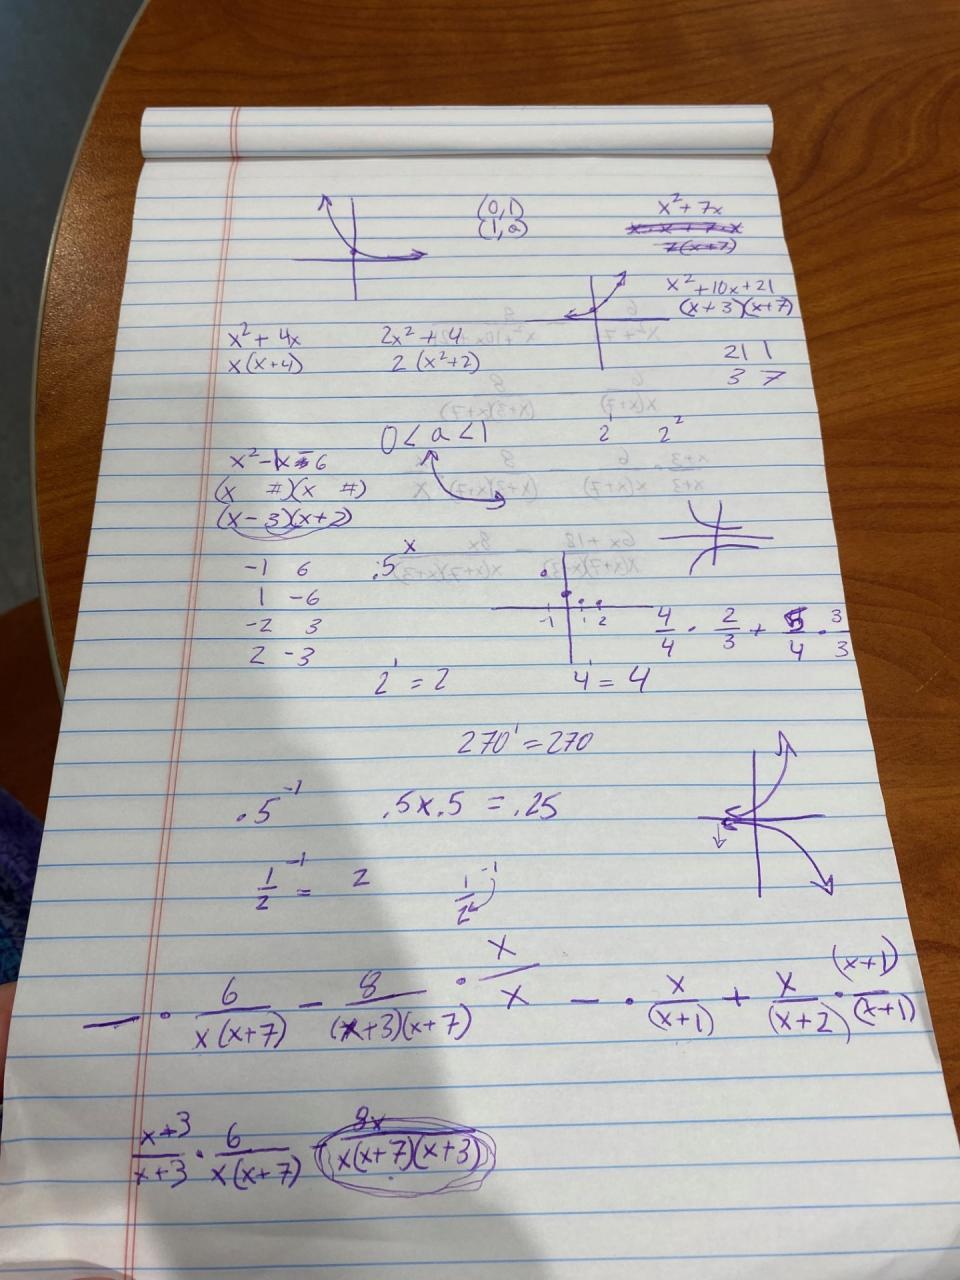 (0,1)
(1,a)
x² + 7x
x · x + 7 · x
7(x+7)
x² + 10x + 21
(x+3)(x+7)
21 1
3 7
x² + 4x
x(x+4)
2x² + 4
2(x²+2)
0 < a < 1
2¹ 2²
x² - 1x - 6
(x #)(x #)
(x-3)(x+2)
-1 6
1 -6
-2 3
2 -3
.5ˣ
-1 1 2
4/4 · 2/3 + 5/4 · 3/3
2¹ = 2
4¹ = 4
270¹ = 270
.5⁻¹
.5x.5 = .25
1/2⁻¹ = 2
1/2⁻¹
— · 6/x(x+7) - 8/(x+3)(x+7) · x/x
— · x/(x+1) + x/(x+2) · (x+1)/(x+1)
x+3/x+3 · 6/x(x+7) - 8x/x(x+7)(x+3)